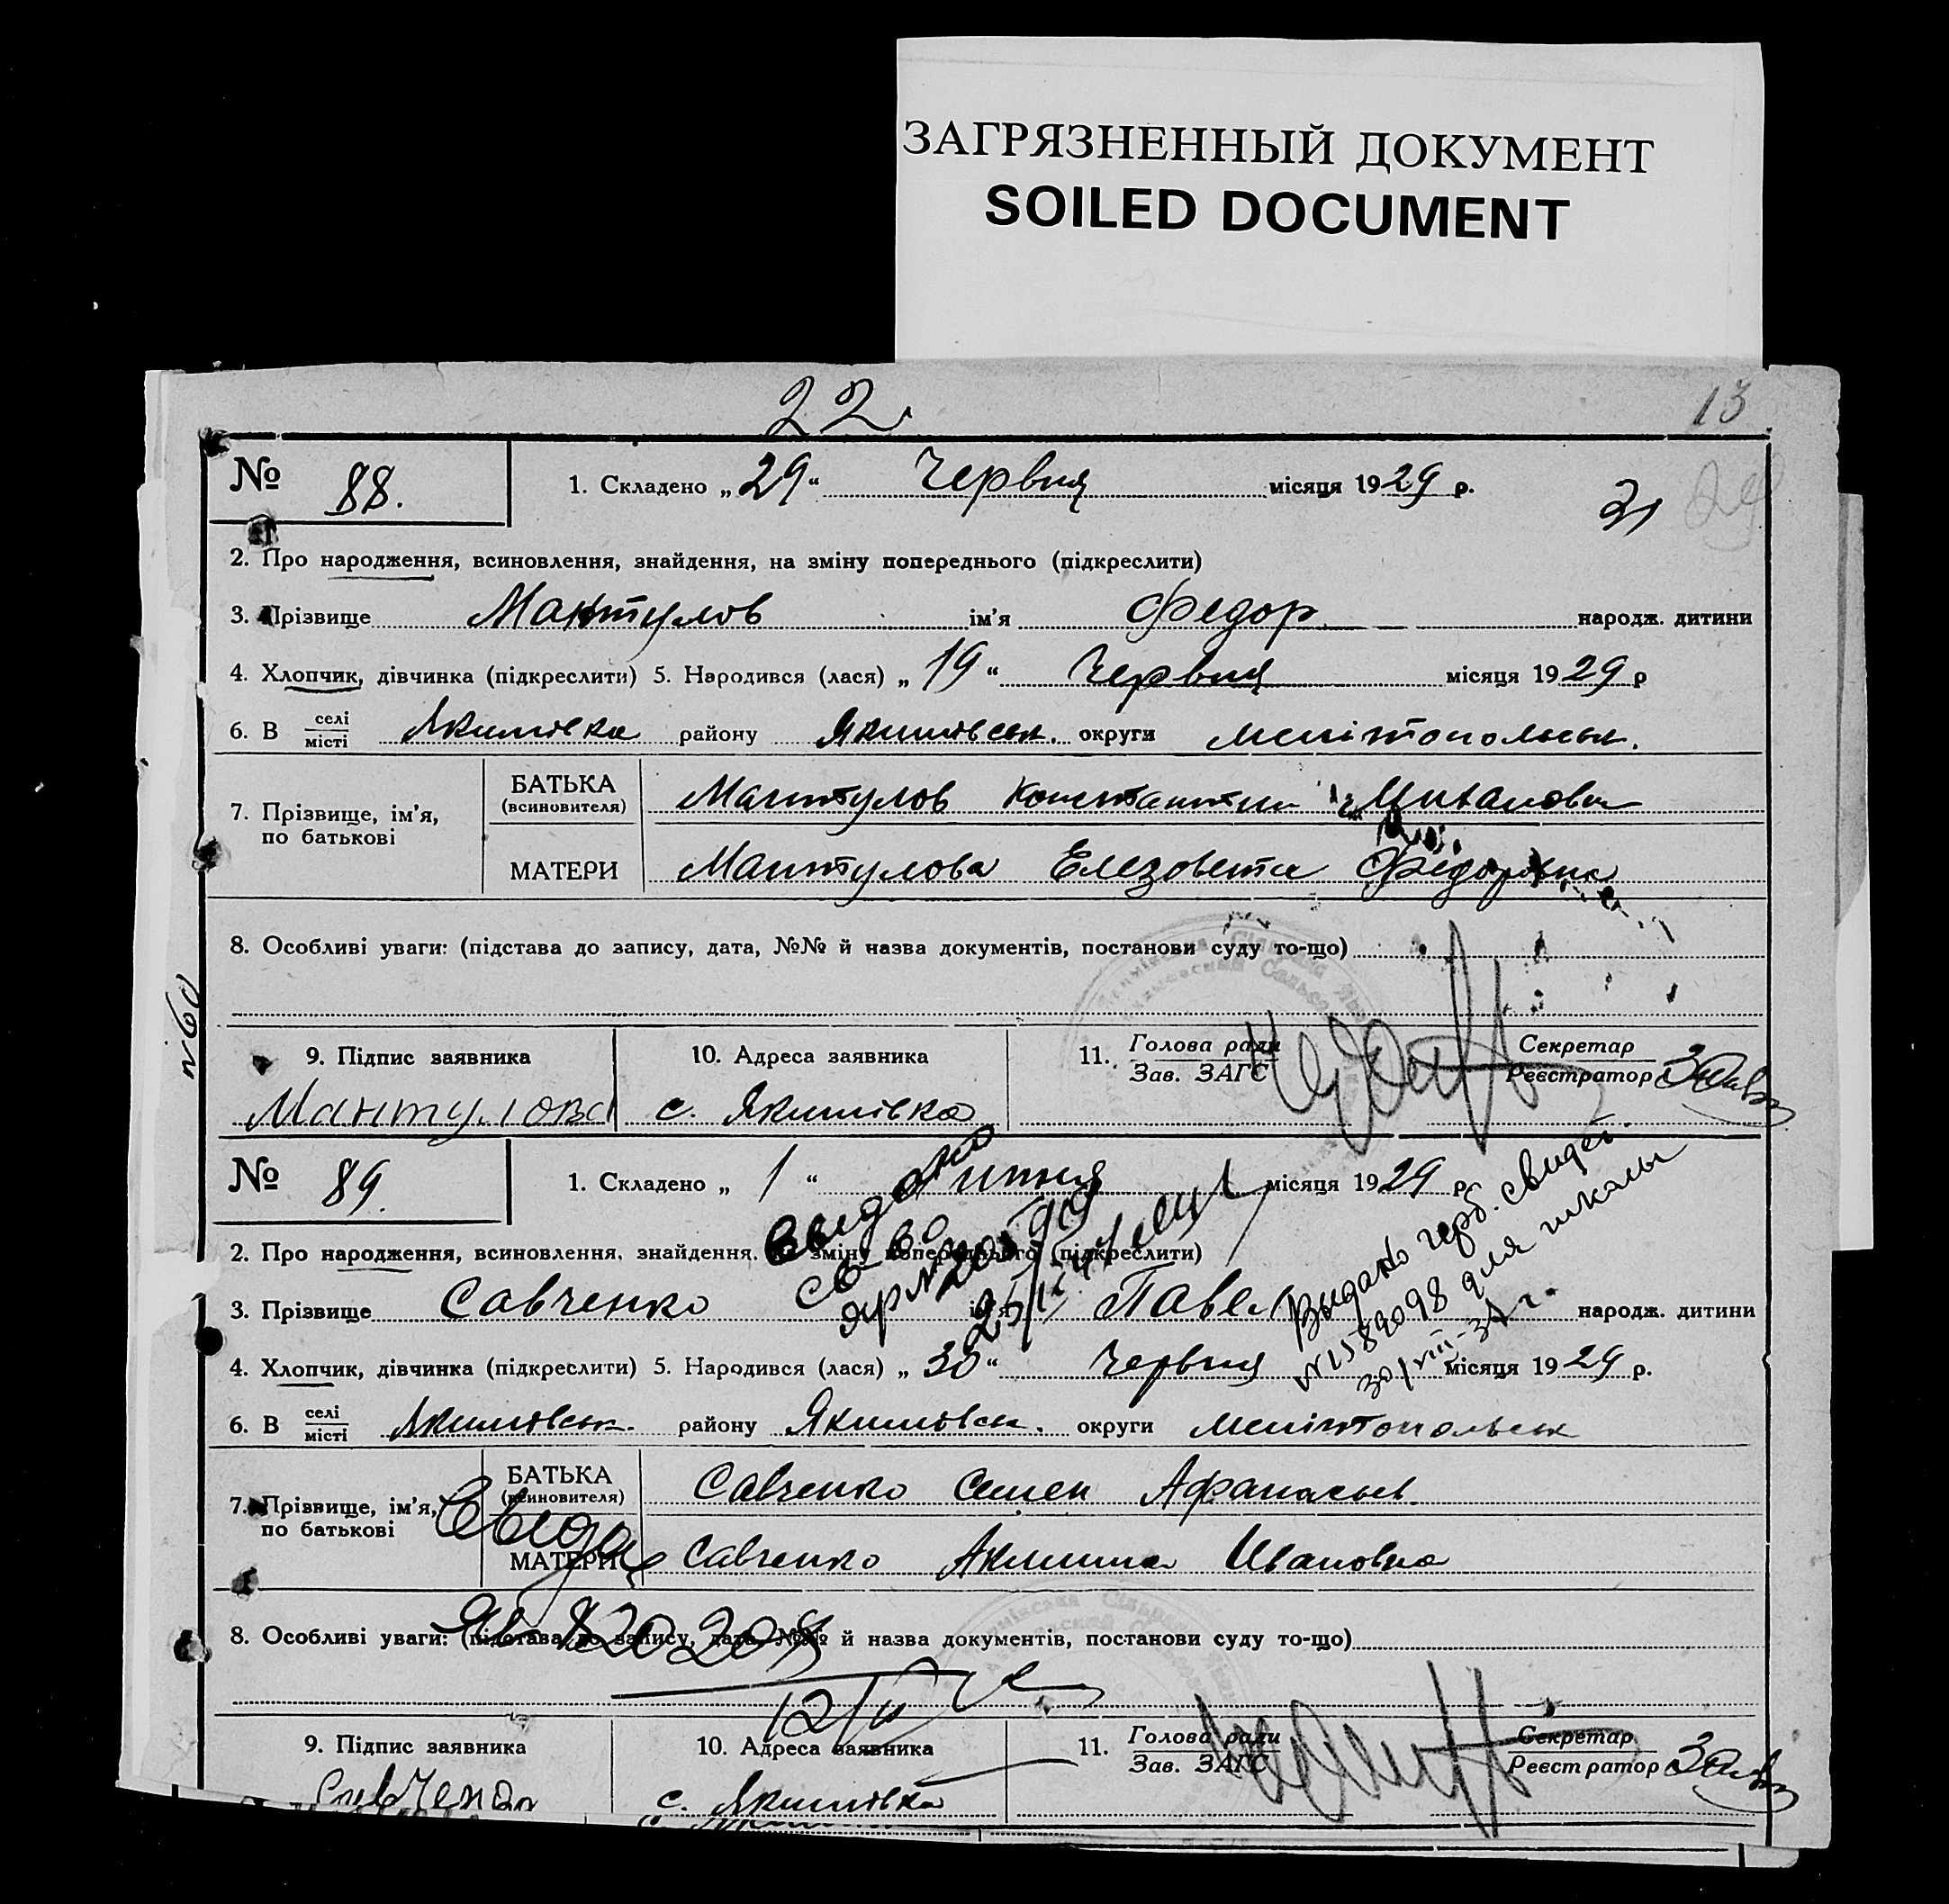 ЗАГРЯЗНЕННЫЙ ДОКУМЕНТ
SOILED DOCUMENT
22
13
№ 88. 1. Складено „ 29 “ Червня місяця 1929 р.
31 29
2. Про народження, всиновлення, знайдення, на зміну попереднього (підкреслити)
3. Прізвище Мантулов ім'я Федор народж. дитини
4. Хлопчик, дівчинка (підкреслити) 5. Народився (лася) „ 19 “ Червня місяця 1929 р
6. В селі/місті Якимівка району Якимівськ. округи Мелітопольськ.
7. Прізвище, ім'я, по батькові
БАТЬКА (всиновителя) Мантулов Константин
МАТЕРИ Мантулова Елезовета Федоровна
8. Особливі уваги: (підстава до запису, дата, №№ й назва документів, постанови суду то-що)
№60
9. Підпис заявника 10. Адреса заявника 11. Голова ради/Зав. ЗАГС Секретар/Реєстратор
Мантулова с. Якимівка
№ 89. 1. Складено „ 1 “ Липня місяця 1929 р.
2. Про народження, всиновлення, знайдення, на зміну попереднього (підкреслити)
3. Прізвище Савченко ім'я Павел народж. дитини
Выдано
св-во
Выдано герб. свидет.
№1589098 для школы
30/VIII-37 г.
4. Хлопчик, дівчинка (підкреслити) 5. Народився (лася) „ 30 “ Червня місяця 1929 р.
6. В селі/місті Якимовськ. району Якимовськ. округи Мелітопольськ
7. Прізвище, ім'я, по батькові
БАТЬКА (всиновителя) Савченко Семен Афанасьев.
МАТЕРИ Савченко Акилина Ивановна
8. Особливі уваги: (підстава до запису, дата, №№ й назва документів, постанови суду то-що)
9. Підпис заявника 10. Адреса заявника 11. Голова ради/Зав. ЗАГС Секретар/Реєстратор
с. Якимівка